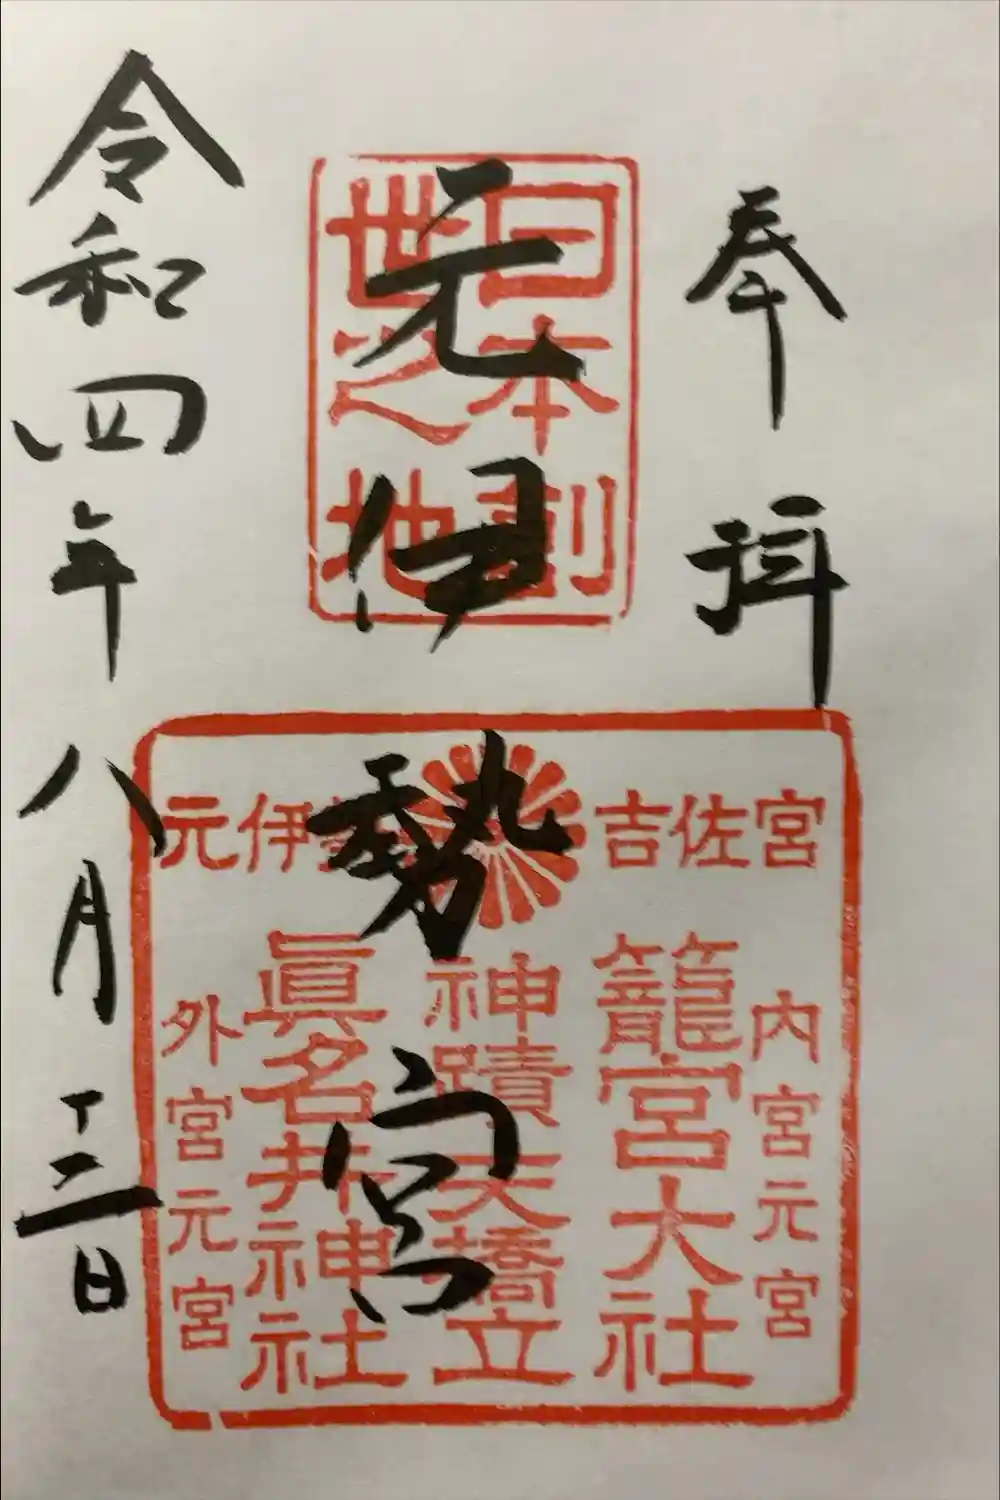 奉拝
日本創
世之地
元伊勢宮
吉佐宮
元伊勢
内宮元宮
籠宮大社
神蹟天橋立
眞名井神社
外宮元宮
令和四年八月十二日